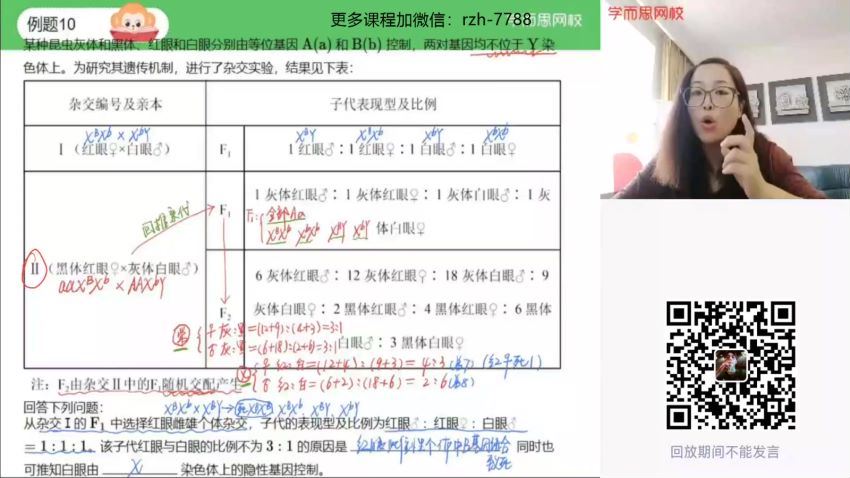 例题10
更多课程加微信：rzh-7788
学而思网校
学而思网校
某种昆虫灰体和黑体、红眼和白眼分别由等位基因 A(a) 和 B(b) 控制，两对基因均不位于 Y 染
色体上。为研究其遗传机制，进行了杂交实验，结果见下表：
杂交编号及亲本
子代表现型及比例
XᴮXᵇ × XᵇY
XᴮY XᴮXᵇ XᵇY XᵇXᵇ
Ⅰ（红眼♀×白眼♂）
F₁
1 红眼♂：1 红眼♀：1 白眼♂：1 白眼♀
1 灰体红眼♂：1 灰体红眼♀：1 灰体白眼♂：1 灰
体白眼♀
F₁
F₁: 全部Aa
XᴮXᵇ XᵇXᵇ XᴮY XᵇY
Ⅱ（黑体红眼♀×灰体白眼♂）
aaXᴮXᵇ × AAXᵇY
F₂
6 灰体红眼♂：12 灰体红眼♀：18 灰体白眼♂：9
灰体白眼♀：2 黑体红眼♂：4 黑体红眼♀：6 黑体
白眼♂：3 黑体白眼♀
常
♀灰:黑=(12+9):(4+3)=3:1
♂灰:黑=(6+18):(2+6)=3:1
♀红:白=(12+4):(9+3)=4:3
♂红:白=(6+2):(18+6)=2:6
注：F₂由杂交Ⅱ中的F₁随机交配产生
回答下列问题：
XᴮXᵇ×XᴮY→ XᴮXᴮ XᴮXᵇ XᴮY XᵇY
从杂交Ⅰ的 F₁ 中选择红眼雌雄个体杂交，子代的表现型及比例为红眼♂：红眼♀：白眼♂
＝1：1：1。该子代红眼与白眼的比例不为 3：1 的原因是
同时也
致死
可推知白眼由 X 染色体上的隐性基因控制。
回放期间不能发言